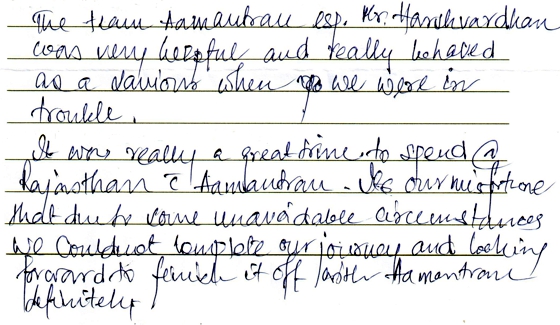 The team Aamantran esp. Kr. Harshvardhan
was very helpful and really behaved
as a saviour when we were in
trouble.
It was really a great time to spend @
Rajasthan c̄ Aamantran. Its our misfortune
that due to some unavoidable circumstances
we could not complete our journey and looking
forward to finish it off with Aamantran
definitely.